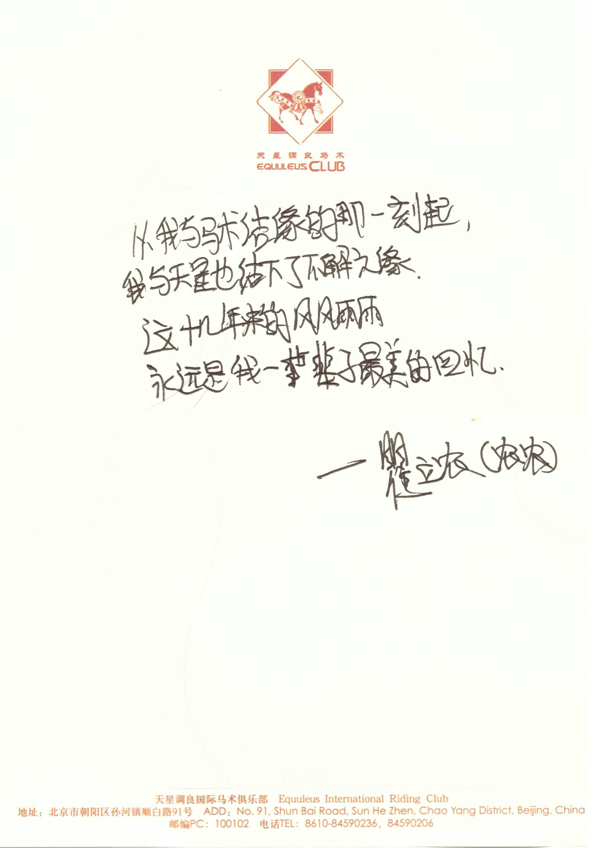 天星调良马术
EQUULEUS CLUB
从我与马术结缘的那一刻起，
我与天星也结下了不解之缘.
这十几年来的风风雨雨
永远是我一辈子最美的回忆.
一瞿立农(农农)
天星调良国际马术俱乐部 Equuleus International Riding Club
地址：北京市朝阳区孙河镇顺白路91号 ADD：No. 91, Shun Bai Road, Sun He Zhen, Chao Yang District, Beijing, China
邮编PC：100102 电话TEL：8610-84590236，84590206